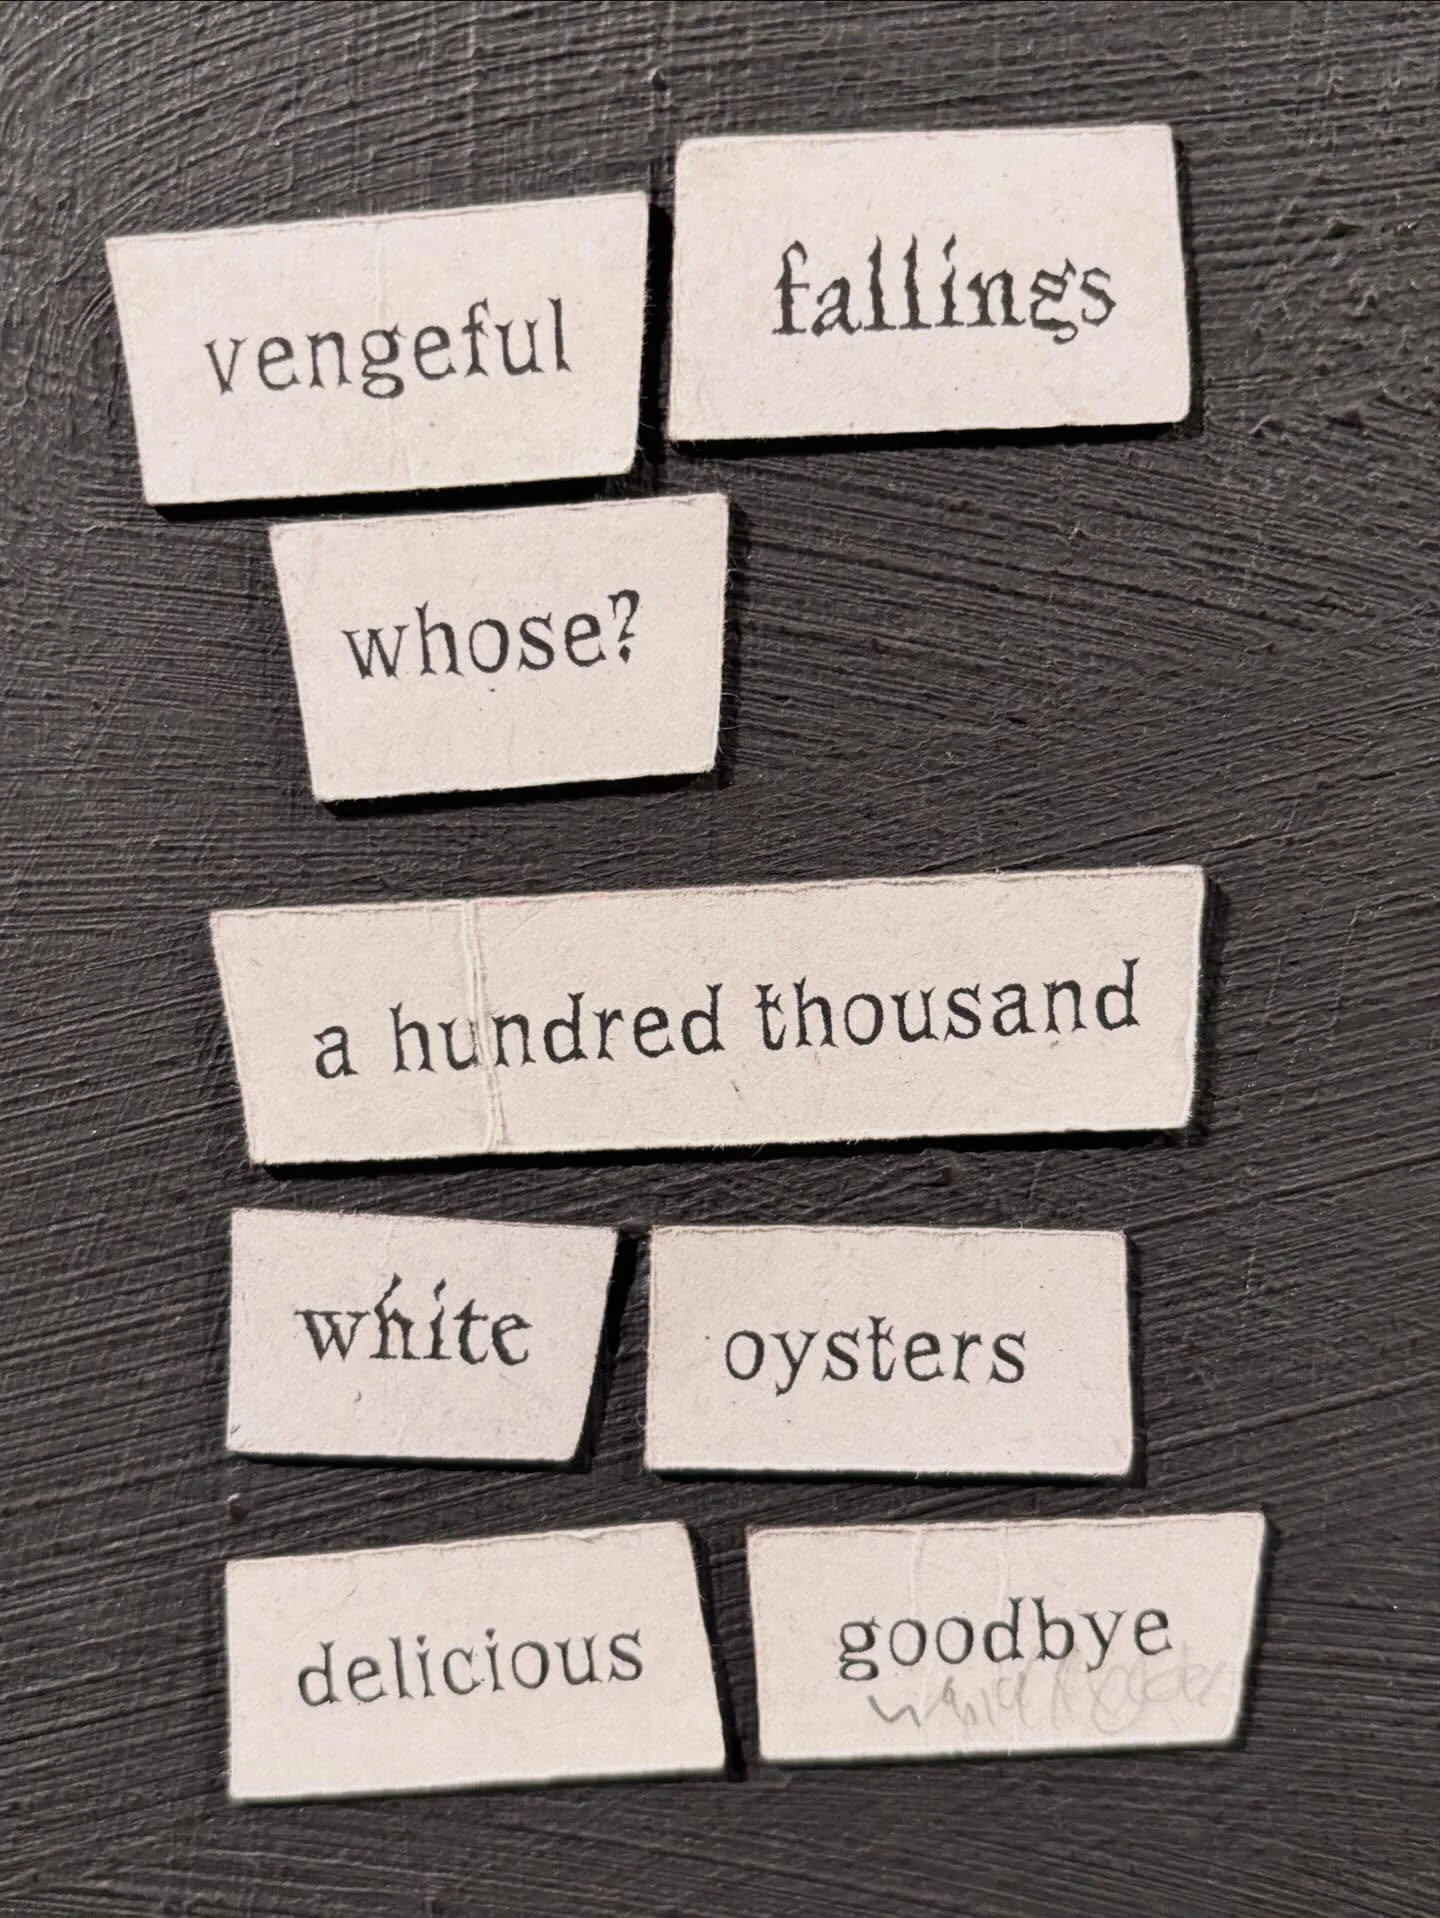 vengeful fallings
whose?
a hundred thousand
white oysters
delicious goodbye